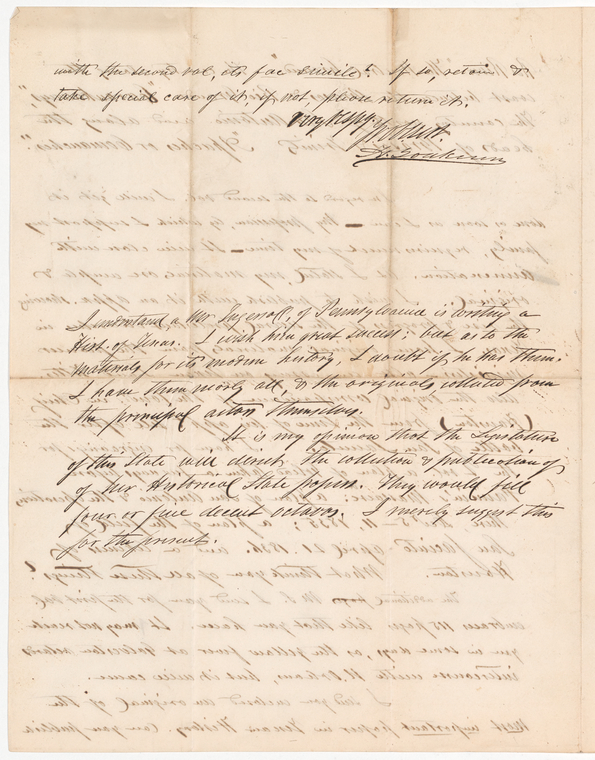 with the second vol, its fac simile? If so, retain &
take special care of it, if not, please return it.
Very respy.
Yr Obt. St.
H. Yoakum
I understand a Mr Ingersoll, of Pennsylvania is writing a
Hist. of Texas. I wish him great success; but as to the
materials for its modern history, I doubt if he has them.
I have them nearly all, & the originals collected from
the principal actors themselves.
It is my opinion that the Legislature
of this State will direct the collection & publication of
of her Historical State papers. They would fill
four or five decent octavos. I merely suggest this
for the present.